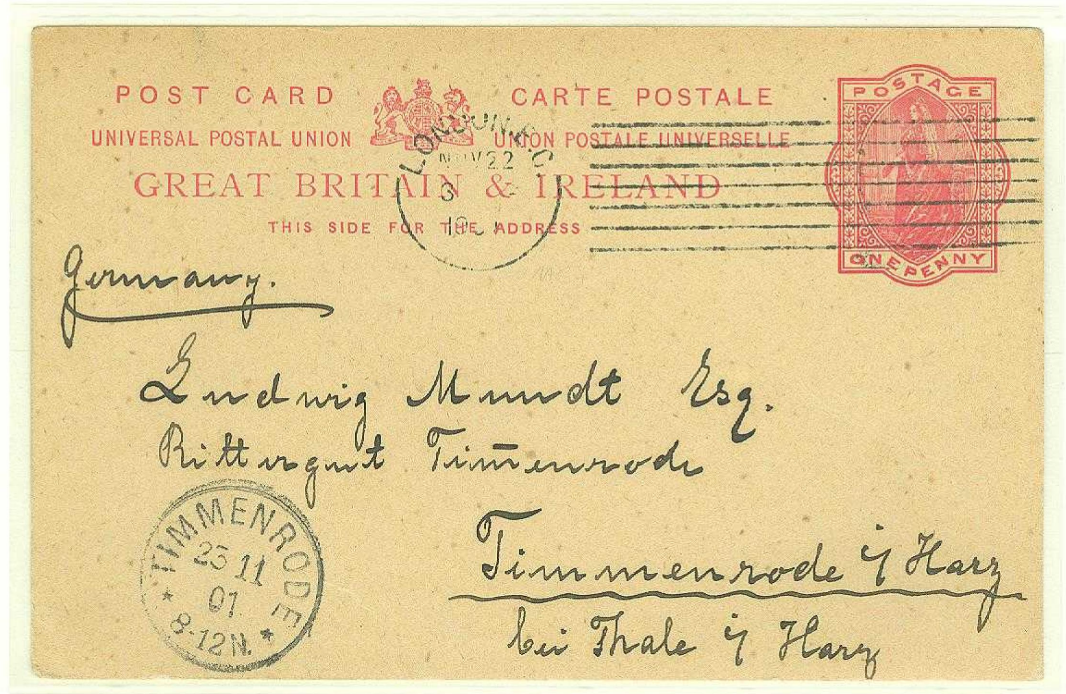 POST CARD CARTE POSTALE
UNIVERSAL POSTAL UNION UNION POSTALE UNIVERSELLE
GREAT BRITAIN & IRELAND
THIS SIDE FOR THE ADDRESS
POSTAGE
ONE PENNY
LONDON.E.C
NOV 22
Germany.
Ludwig Mundt Esq.
Rittergut Tim̅enrode
Timmenrode i/ Harz
bei Thale i/ Harz
TIMMENRODE
25 11
01.
8-12N.